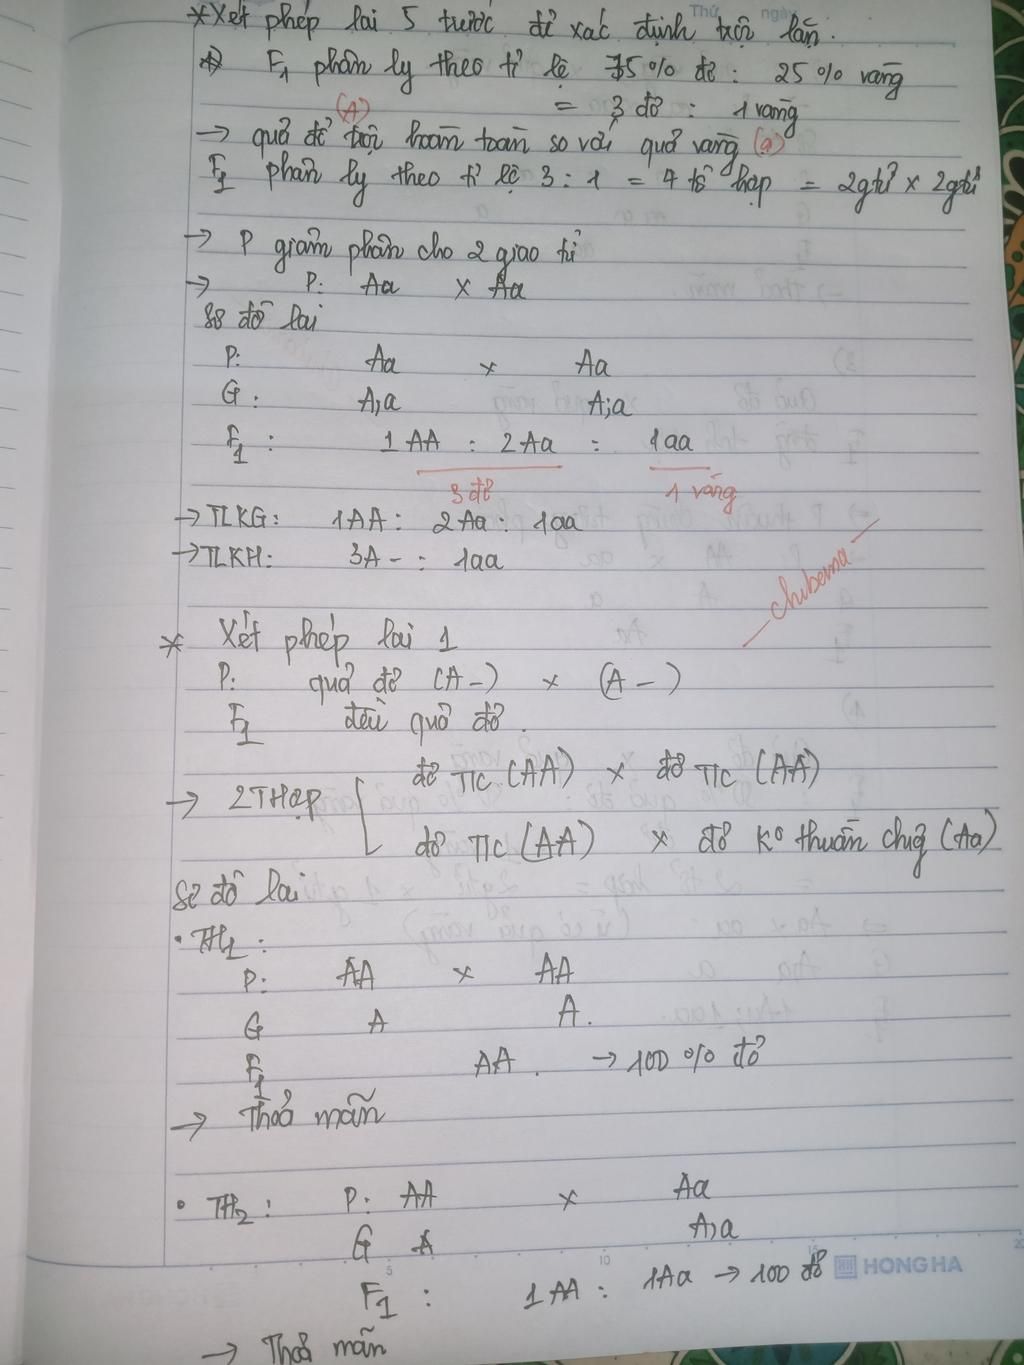 Thứ ngày
* Xét phép lai 5 trước để xác định trội lặn.
F1 phân ly theo tỉ lệ 75% đỏ : 25% vàng
= 3 đỏ : 1 vàng
(A)
→ quả đỏ trội hoàn toàn so với quả vàng (a)
F1 phân ly theo tỉ lệ 3 : 1 = 4 tổ hợp = 2gtử × 2gtử
→ P giảm phân cho 2 giao tử
→ P: Aa × Aa
Sơ đồ lai
P: Aa × Aa
G: A;a A;a
F1 : 1AA : 2Aa : 1aa
3 đỏ 1 vàng
→ TLKG: 1AA : 2Aa : 1aa
→ TLKH: 3A- : 1aa
— chibema —
* Xét phép lai 1
P: quả đỏ (A-) × (A-)
F1 đều quả đỏ.
→ 2THợp
đỏ T/C (AA) × đỏ T/C (AA)
đỏ T/C (AA) × đỏ k° thuần chủg (Aa)
Sơ đồ lai
• TH1 :
P: AA × AA
G A A.
F1 AA. → 100% đỏ
→ Thoả mãn
• TH2 : P: AA × Aa
G A A;a
F1 : 1AA : 1Aa → 100 đỏ
HONG HA
→ Thoả mãn